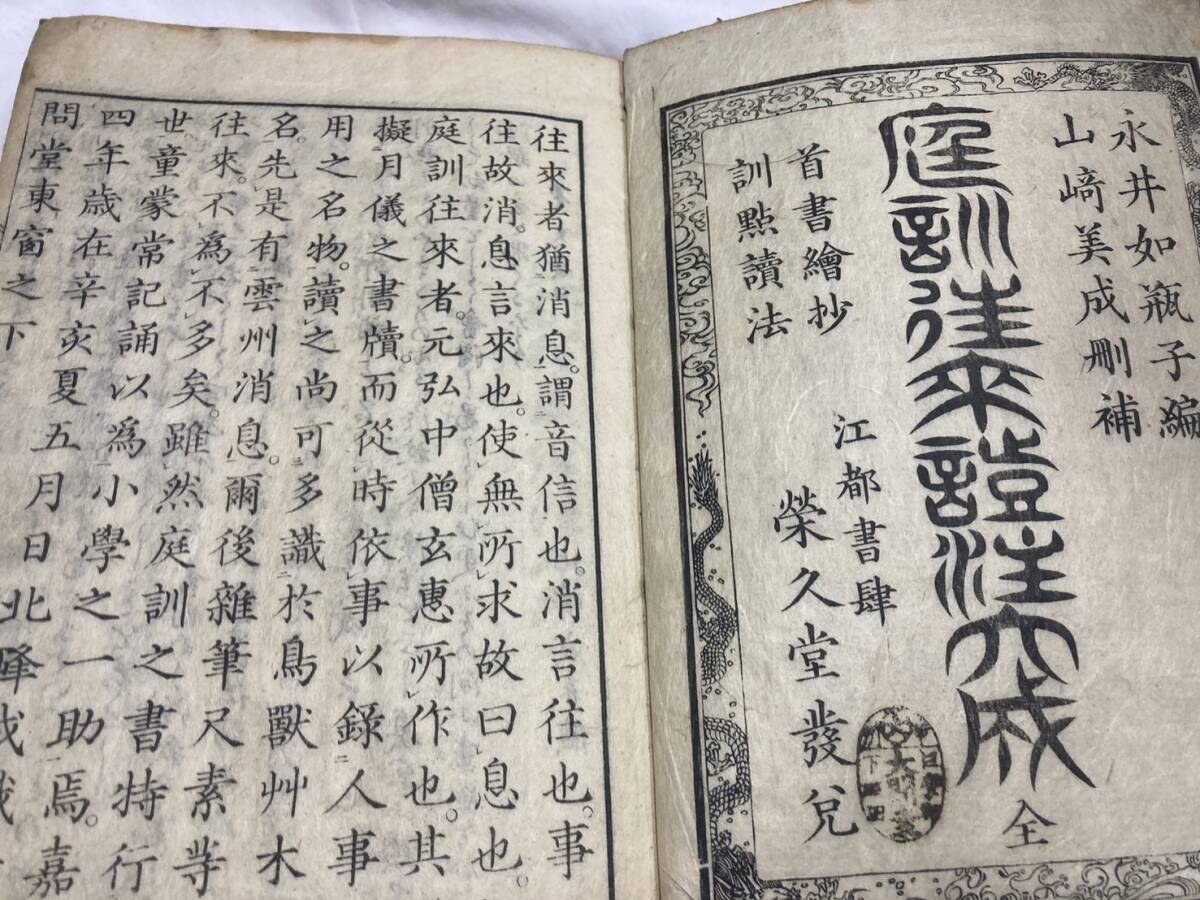 永井如瓶子編
山﨑美成刪補
庭訓往來證注大成
全
首書繪抄
訓點讀法
江都書肆
榮久堂發兌
往來者猶消息。謂音信也。消言往也。事
往故消。息言來也。使無所求故曰息也。
庭訓往來者。元弘中僧玄惠所作也。其
擬月儀之書牘。而從時依事以錄人事
用之名物。讀之尚可多識於鳥獸艸木
名。先是有雲州消息。爾後雜筆尺素等
往來。不爲不多矣。雖然庭訓之書特行
世。童蒙常記誦以爲小學之一助焉。嘉
四年歲在辛亥夏五月日北峰
問堂東窗之下